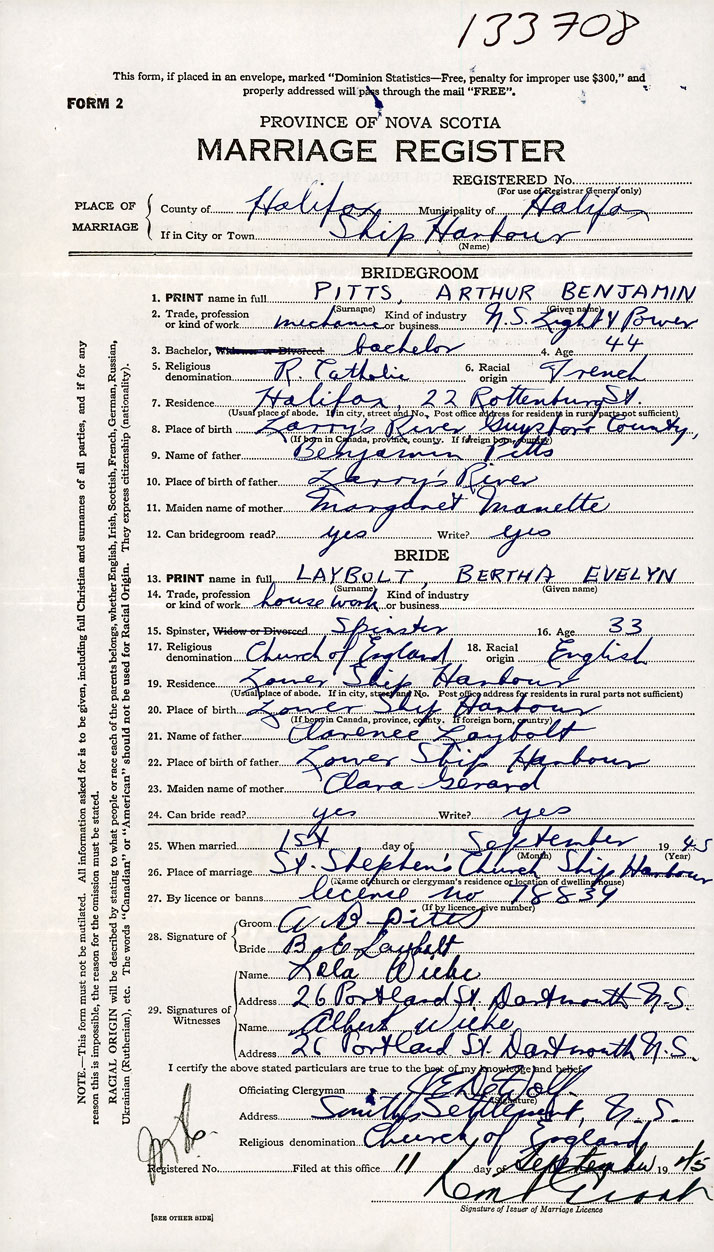 133708
This form, if placed in an envelope, marked "Dominion Statistics—Free, penalty for improper use $300," and
properly addressed will pass through the mail "FREE".
FORM 2
PROVINCE OF NOVA SCOTIA
MARRIAGE REGISTER
REGISTERED No.
(For use of Registrar General only)
PLACE OF MARRIAGE
County of Halifax Municipality of Halifax
If in City or Town Ship Harbour
(Name)
BRIDEGROOM
1. PRINT name in full PITTS, ARTHUR BENJAMIN
(Surname) (Given name)
2. Trade, profession or kind of work mechanic Kind of industry or business N.S. Light & Power
3. Bachelor, Widower or Divorced bachelor 4. Age 44
5. Religious denomination R. Catholic 6. Racial origin French
7. Residence Halifax, 22 Rottenburg St.
(Usual place of abode. If in city, street and No. Post office address for residents in rural parts not sufficient)
8. Place of birth Larry's River Guysboro County,
(If born in Canada, province, county. If foreign born, country)
9. Name of father Benjamin Pitts
10. Place of birth of father Larry's River
11. Maiden name of mother Margaret Manette
12. Can bridegroom read? yes Write? yes
BRIDE
13. PRINT name in full LAYBOLT, BERTHA EVELYN
(Surname) (Given name)
14. Trade, profession or kind of work house work Kind of industry or business
15. Spinster, Widow or Divorced Spinster 16. Age 33
17. Religious denomination Church of England 18. Racial origin English
19. Residence Lower Ship Harbour
(Usual place of abode. If in city, street and No. Post office address for residents in rural parts not sufficient)
20. Place of birth Lower Ship Harbour
(If born in Canada, province, county. If foreign born, country)
21. Name of father Clarence Laybolt
22. Place of birth of father Lower Ship Harbour
23. Maiden name of mother Clara Gerard
24. Can bride read? yes Write? yes
25. When married 1st day of September 1945
(Month) (Year)
26. Place of marriage St. Stephen's Church Ship Harbour
(Name of church or clergyman's residence or location of dwelling house)
27. By licence or banns licence no 18839
(If by licence, give number)
28. Signature of
Groom A B Pitts
Bride B E Laybolt
29. Signatures of Witnesses
Name Lola Wiehe
Address 26 Portland St. Dartmouth N.S.
Name Albert Wiehe
Address 26 Portland St. Dartmouth N.S.
I certify the above stated particulars are true to the best of my knowledge and belief.
Officiating Clergyman
(Signature)
Address Smiths Settlement, N.S.
Religious denomination Church of England
Registered No. Filed at this office 11 day of September 1945
Signature of Issuer of Marriage Licence
[SEE OTHER SIDE]
NOTE.—This form must not be mutilated. All information asked for is to be given, including full Christian and surnames of all parties, and if for any
reason this is impossible, the reason for the omission must be stated.
RACIAL ORIGIN will be described by stating to what people or race each of the parents belongs, whether English, Irish, Scottish, French, German, Russian,
Ukrainian (Ruthenian), etc. The words "Canadian" or "American" should not be used for Racial Origin. They express citizenship (nationality).